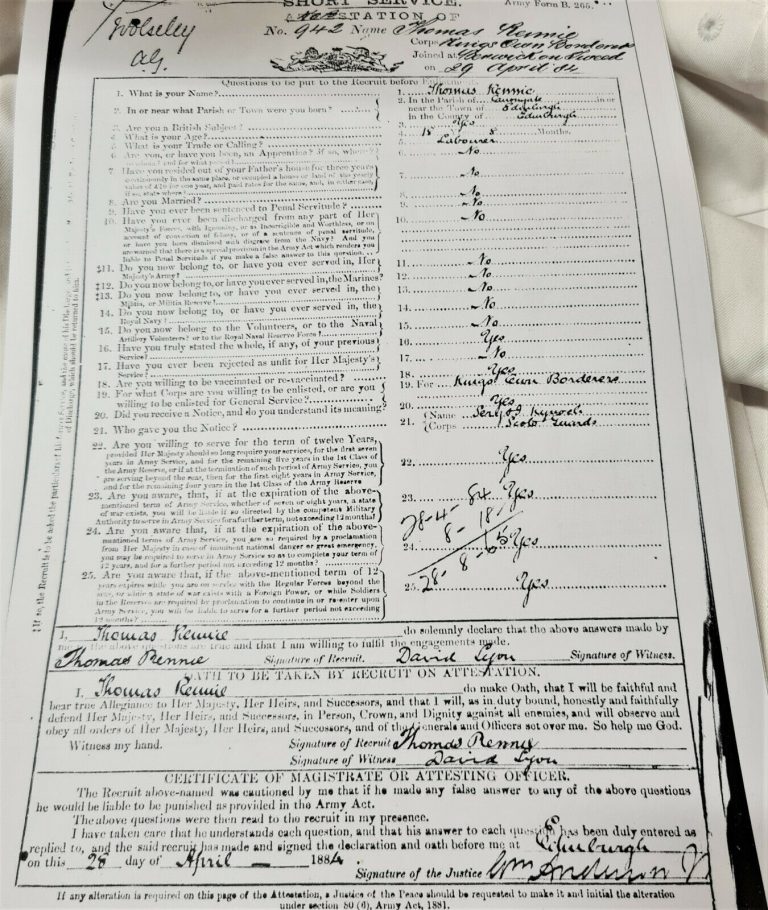 SHORT SERVICE.
Army Form B. 265.
Wolseley
AG.
ATTESTATION OF
No. 942 Name Thomas Rennie
Corps Kings Own Borderers
Joined at Berwick on Tweed
on 29 April 84
Questions to be put to the Recruit before
1. What is your Name? 1. Thomas Rennie
2. In or near what Parish or Town were you born? 2. In the Parish of Canongate in or
near the Town of Edinburgh
in the County of Edinburgh
3. Are you a British Subject? 3. Yes
4. What is your Age? 4. 18 8 Months.
5. What is your Trade or Calling? 5. Labourer
6. Are you, or have you been, an Apprentice? if so, where? 6. No
7. Have you resided out of your Father's house for three years 7. No
continuously in the same place, or occupied a house or land of the yearly
value of £10 for one year, and paid rates for the same, and, in either case,
if so, state where?
8. Are you Married? 8. No
9. Have you ever been sentenced to Penal Servitude? 9. No
10. Have you ever been discharged from any part of Her 10. No
Majesty's Forces, with Ignominy, or as Incorrigible and Worthless, or on
account of conviction of felony, or of a sentence of penal servitude,
or have you been dismissed with disgrace from the Navy? And you
are warned that there is a special provision in the Army Act which renders you
liable to Penal Servitude if you make a false answer to this question.
‡11. Do you now belong to, or have you ever served in, Her 11. No
Majesty's Army?
‡12. Do you now belong to, or have you ever served in, the Marines? 12. No
‡13. Do you now belong to, or have you ever served in, the 13. No
Militia, or Militia Reserve?
14. Do you now belong to, or have you ever served in, the 14. No
Royal Navy?
15. Do you now belong to the Volunteers, or to the Naval 15. No
Artillery Volunteers? or to the Royal Naval Reserve Force?
16. Have you truly stated the whole, if any, of your previous 16. Yes
Service?
17. Have you ever been rejected as unfit for Her Majesty's 17. No
Service?
18. Are you willing to be vaccinated or re-vaccinated? 18. Yes
19. For what Corps are you willing to be enlisted, or are you 19. For Kings Own Borderers
willing to be enlisted for General Service?
20. Did you receive a Notice, and do you understand its meaning? 20. Yes
21. Who gave you the Notice? 21. Name Sergt
Corps Scots Guards
22. Are you willing to serve for the term of twelve Years, 22. Yes
provided Her Majesty should so long require your services, for the first seven
years in Army Service, and for the remaining five years in the 1st Class of
the Army Reserve, or if at the termination of such period of Army Service, you
are serving beyond the seas, then for the first eight years in Army Service,
and for the remaining four years in the 1st Class of the Army Reserve
23. Are you aware, that, if at the expiration of the above- 23. Yes
mentioned term of Army Service, whether of seven or eight years, a state
of war exists, you will be liable if so directed by the competent Military
Authority to serve in Army Service for a further term, not exceeding 12 months?
24. Are you aware that, if at the expiration of the above- 24. Yes
mentioned terms of Army Service, you are so required by a proclamation
from Her Majesty in case of imminent national danger or great emergency,
you may be required to serve in Army Service so as to complete your term of
12 years, and for a further period not exceeding 12 months?
25. Are you aware that, if the above-mentioned term of 12 25. Yes
years expires while you are on service with the Regular Forces beyond the
seas, or while a state of war exists with a Foreign Power, or while Soldiers
in the Reserve are required by proclamation to continue in or re-enter upon
Army Service, you will be liable to serve for a further period not exceeding
12 months?
28-4-84
8-18-
28-8-65
I, Thomas Rennie do solemnly declare that the above answers made by
me to the above questions are true and that I am willing to fulfil the engagements made.
Thomas Rennie Signature of Recruit. David Lyon Signature of Witness.
OATH TO BE TAKEN BY RECRUIT ON ATTESTATION.
I, Thomas Rennie do make Oath, that I will be faithful and
bear true Allegiance to Her Majesty, Her Heirs, and Successors, and that I will, as in duty bound, honestly and faithfully
defend Her Majesty, Her Heirs, and Successors, in Person, Crown, and Dignity against all enemies, and will observe and
obey all orders of Her Majesty, Her Heirs, and Successors, and of the Generals and Officers set over me. So help me God.
Witness my hand. Signature of Recruit Thomas Rennie
Signature of Witness David Lyon
CERTIFICATE OF MAGISTRATE OR ATTESTING OFFICER.
The Recruit above-named was cautioned by me that if he made any false answer to any of the above questions
he would be liable to be punished as provided in the Army Act.
The above questions were then read to the recruit in my presence.
I have taken care that he understands each question, and that his answer to each question has been duly entered as
replied to, and the said recruit has made and signed the declaration and oath before me at Edinburgh
on this 28 day of April 1884
Signature of the Justice Wm Anderson
If any alteration is required on this page of the Attestation, a Justice of the Peace should be requested to make it and initial the alteration
under section 80 (6), Army Act, 1881.